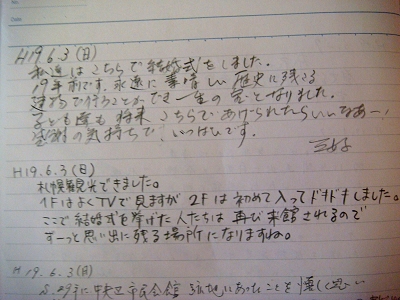 No.
Date
H19.6.3(日)
私達はこちらで結婚式をしました。
19年前です。永遠に素晴しい歴史に残る
建物で行うことができ一生の宝となりました。
子ども達も将来こちらであげられたらいいなあー、
感謝の気持ちで、いっぱいです。
三好
H19.6.3(日)
札幌観光できました。
1FはよくTVで見ますが2Fは初めて入ってドキドキしました。
ここで結婚式を挙げた人たちは再び来館されるので
ずーっと思い出に残る場所になりますね。
H19.6.3(日)
S.29年に中央区市民会館 あったことを懐しく思い